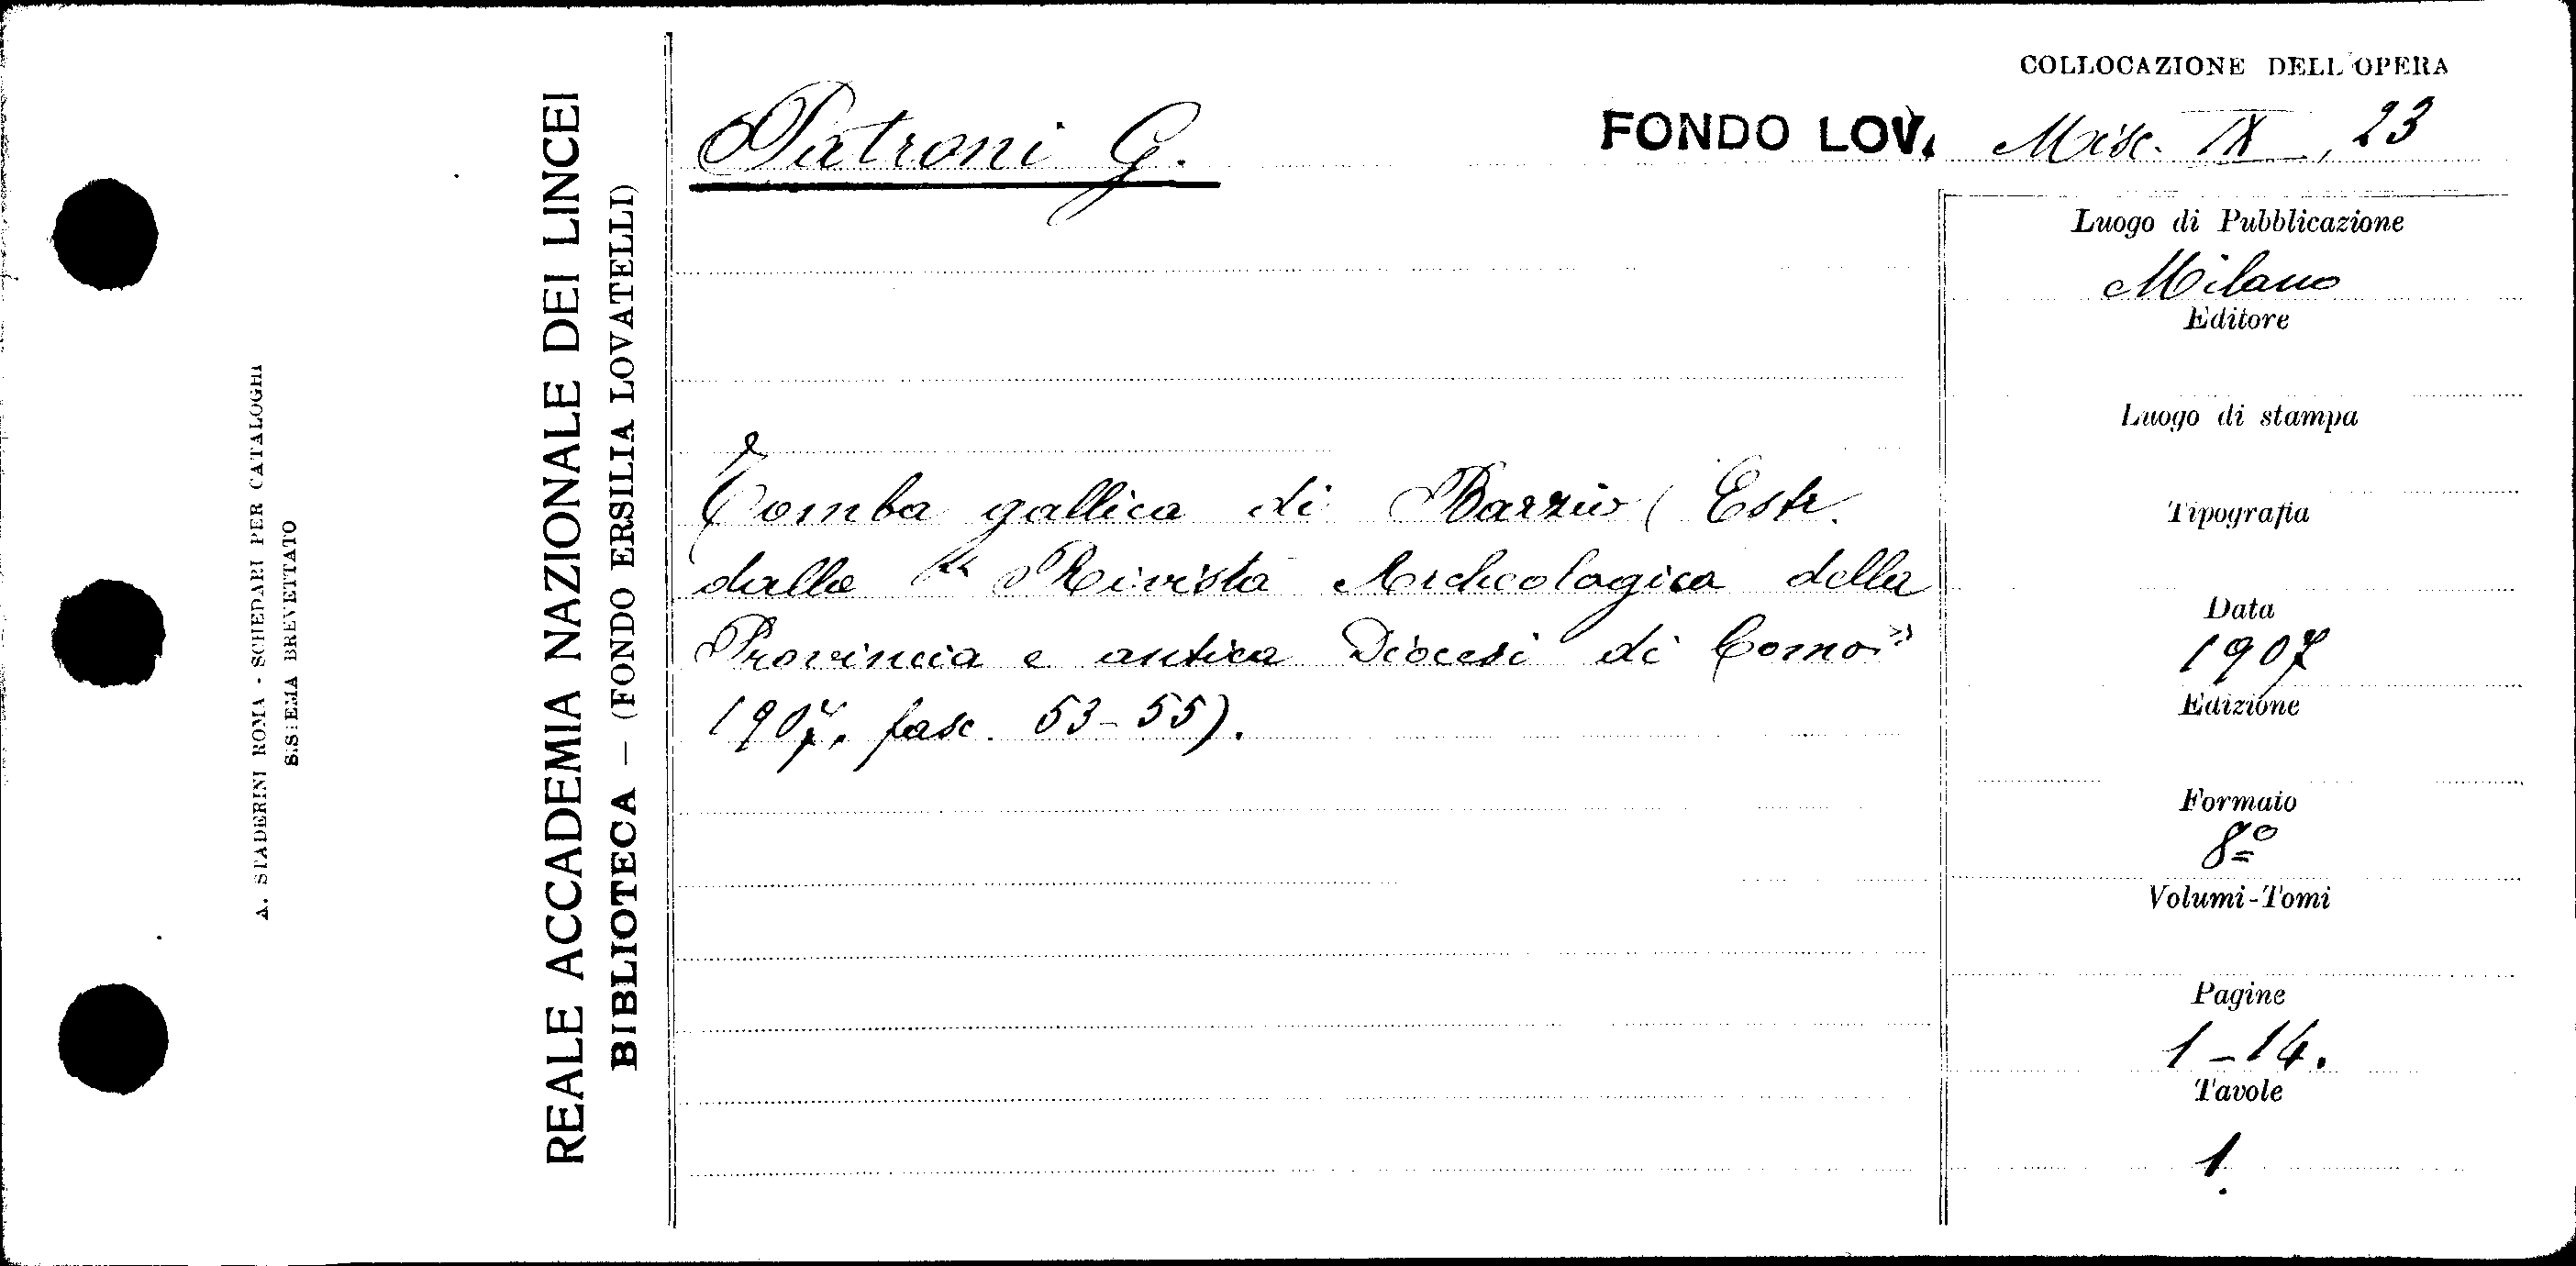 A. STADERINI ROMA - SCHEDARI PER CATALOGHI
SISTEMA BREVETTATO
REALE ACCADEMIA NAZIONALE DEI LINCEI
BIBLIOTECA — (FONDO ERSILIA LOVATELLI)
Patroni G.
Tomba gallica di Barzio (Estr.
dalla "Rivista Archeologica della
Provincia e antica Diocesi di Como"
1907, fasc. 53-55).
COLLOCAZIONE DELL'OPERA
FONDO LOV. Misc. IX, 23
Luogo di Pubblicazione
Milano
Editore
Luogo di stampa
Tipografia
Data
1907
Edizione
Formato
8º
Volumi-Tomi
Pagine
1-14.
Tavole
1.